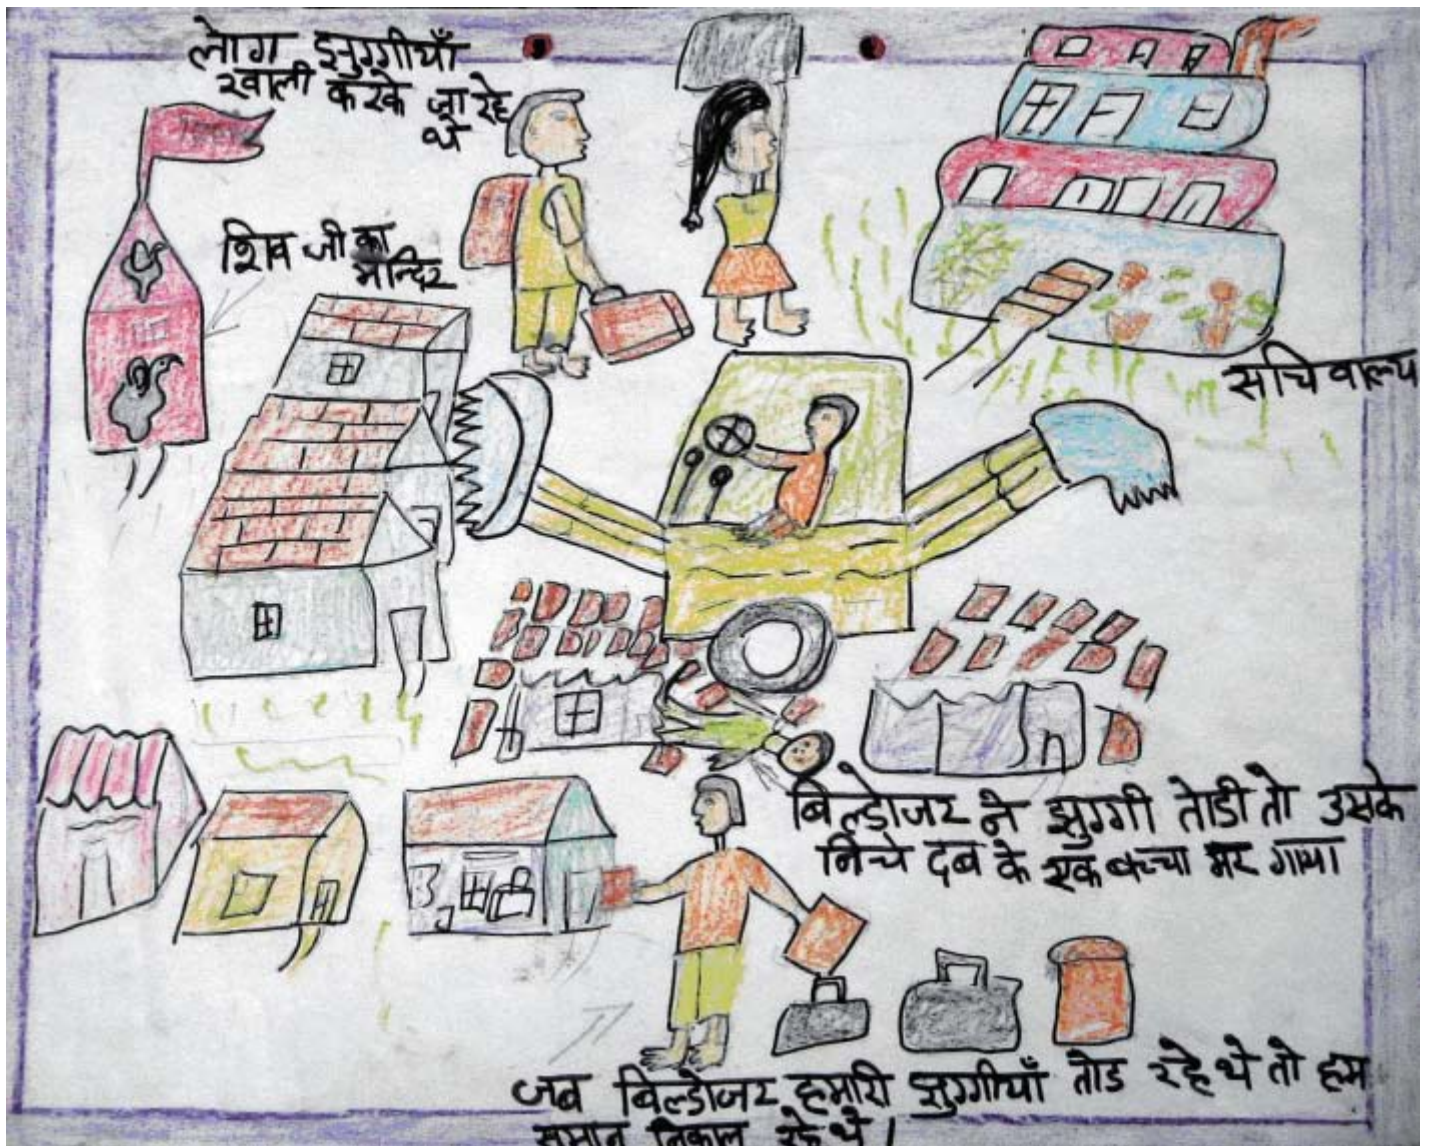 लोग झुग्गीयाँ
खाली करके जा रहे
थे
शिव जी का
मन्दिर
सचिवाल्य
बिल्डोजर ने झुग्गी तोडी तो उसके
निचे दब के एक बच्चा मर गाया
जब बिल्डोजर हमारी झुग्गीयाँ तोड रहे थे तो हम
समान निकाल रहे थे।